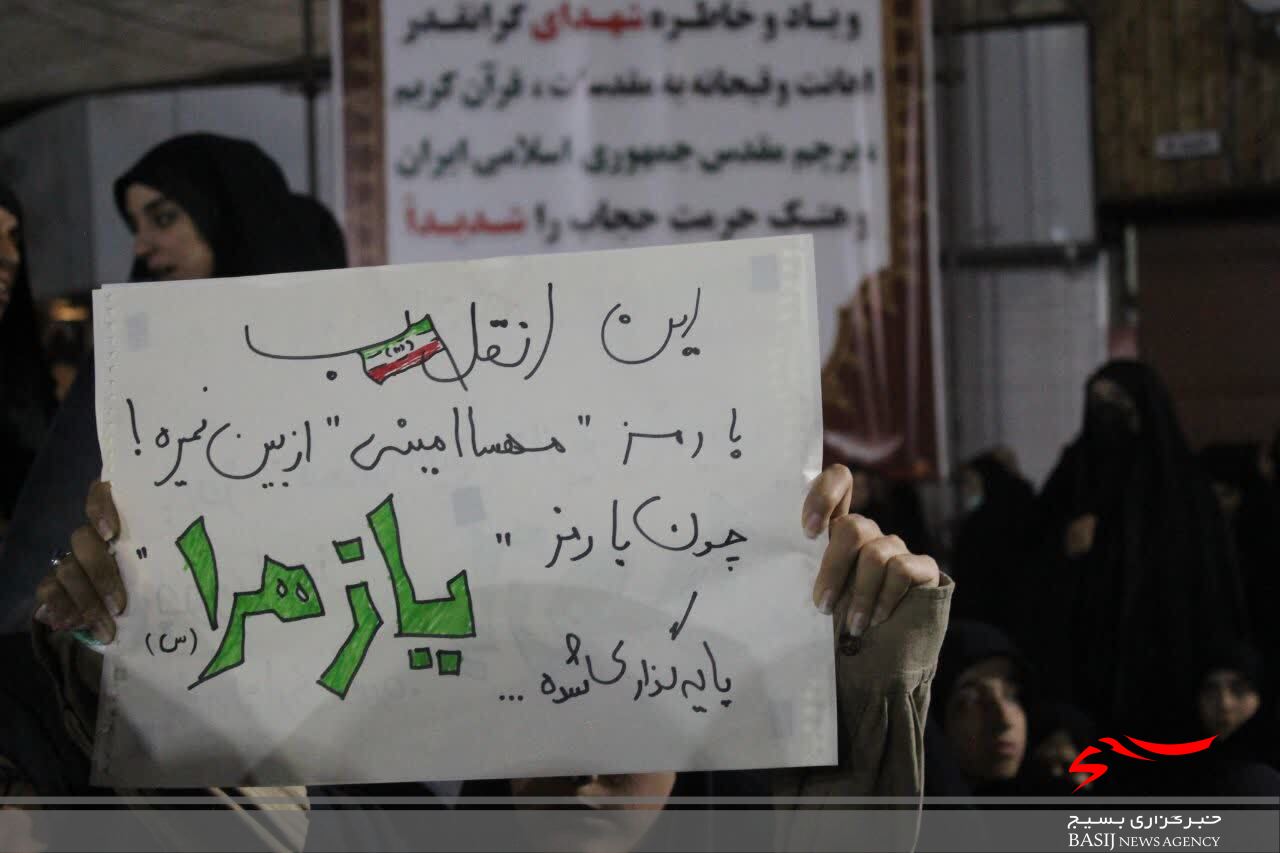 و یاد و خاطره شهدای گرانقدر
اهانت وقیحانه به مقدسات ، قرآن کریم
، پرچم مقدس جمهوری اسلامی ایران
هتک حرمت حجاب را شدیداً
این انقلاب
با رمز "مهسا امینی" از بین نمیره !
چون با رمز "
یا زهرا (س) "
پایه گذاری شده ...
خبرگزاری بسیج
BASIJ NEWS AGENCY